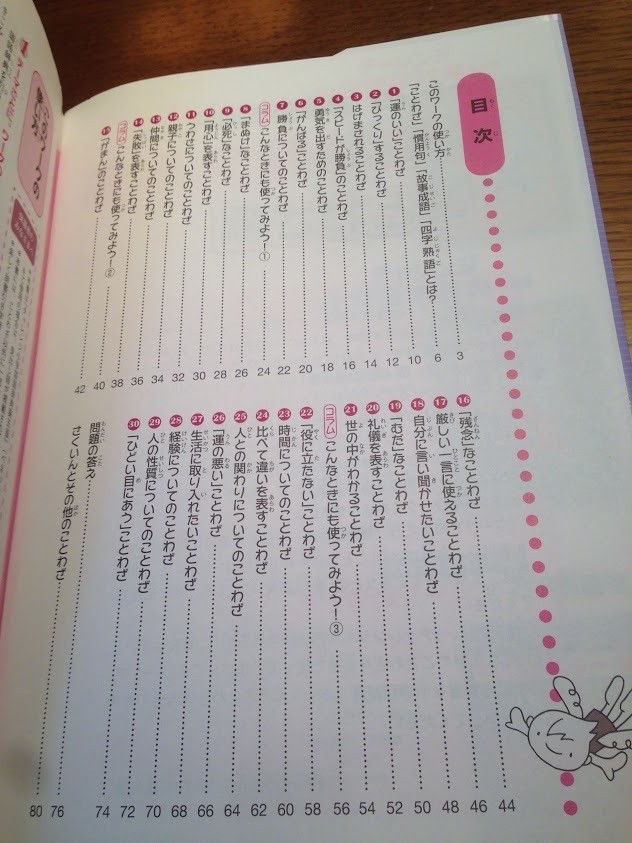 目次
このワークの使い方 3
「ことわざ」「慣用句」「故事成語」「四字熟語」とは? 6
1 「運のいい」ことわざ 10
2 「びっくり」することわざ 12
3 はげまされることわざ 14
4 「スピードが勝負」のことわざ 16
5 勇気を出すためのことわざ 18
6 「がんばる」ことわざ 20
7 勝負についてのことわざ 22
コラム こんなときにも使ってみよう!① 24
8 「まぬけ」なことわざ 26
9 「必死」なことわざ 28
10 「用心」を表すことわざ 30
11 うわさについてのことわざ 32
12 親子についてのことわざ 34
13 仲間についてのことわざ 36
14 「失敗」を表すことわざ 38
コラム こんなときにも使ってみよう!② 40
15 「がまん」のことわざ 42
16 「残念」なことわざ 44
17 厳しい一言に使えることわざ 46
18 自分に言い聞かせたいことわざ 48
19 「むだ」なことわざ 50
20 礼儀を表すことわざ 52
21 世の中がわかることわざ 54
コラム こんなときにも使ってみよう!③ 56
22 「役に立たない」ことわざ 58
23 時間についてのことわざ 60
24 比べて違いを表すことわざ 62
25 人との関わりについてのことわざ 64
26 「運の悪い」ことわざ 66
27 生活に取り入れたいことわざ 68
28 経験についてのことわざ 70
29 人の性質についてのことわざ 72
30 「ひどい目にあう」ことわざ 74
問題の答え 76
さくいんとその他のことわざ 80